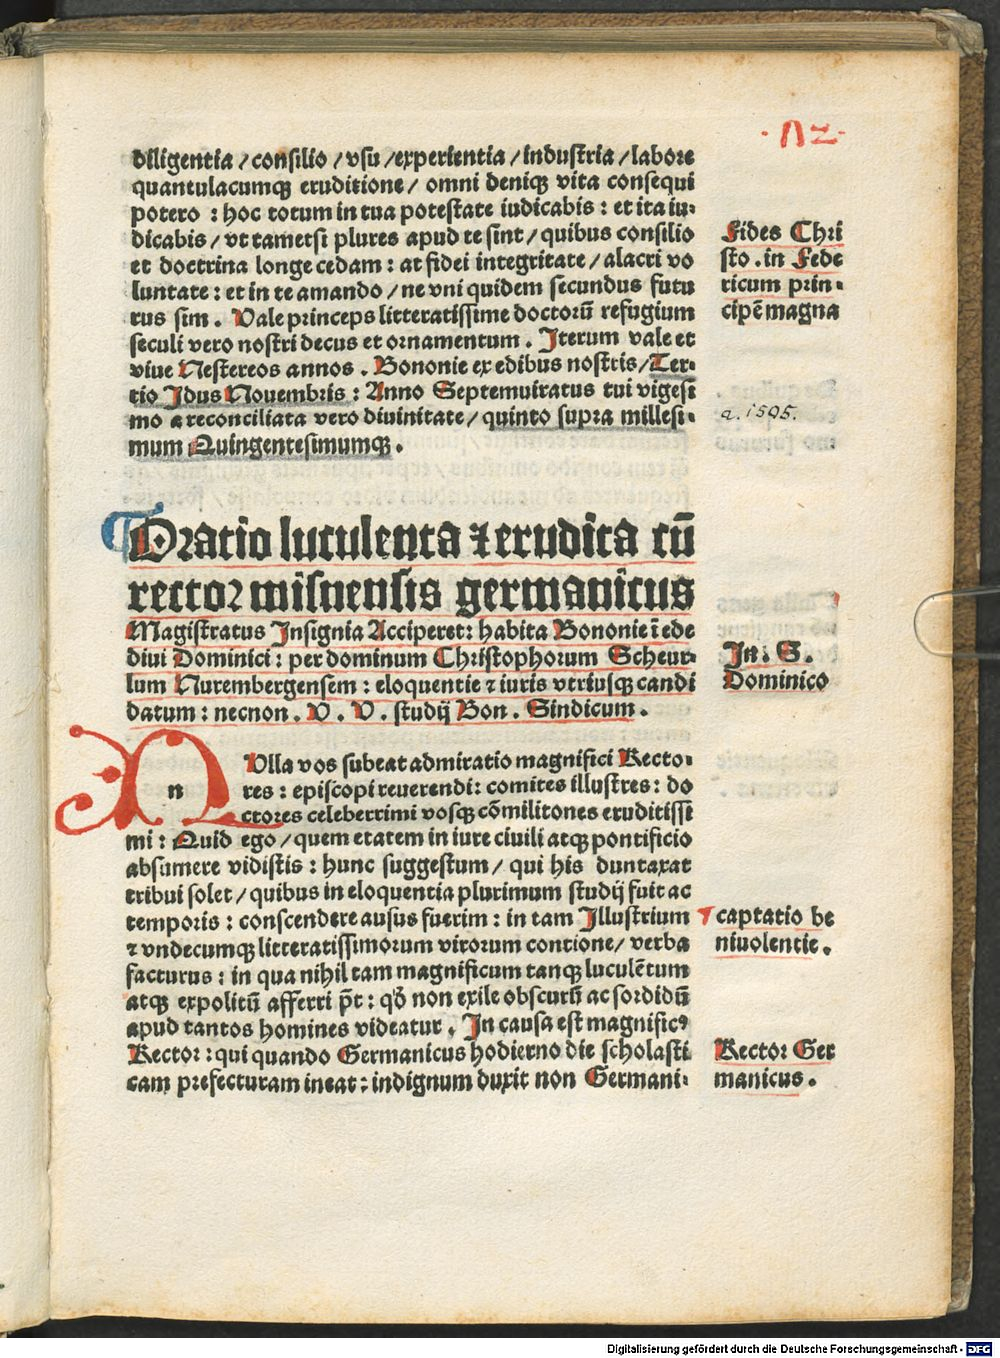 ·112·
diligentia / consilio / vsu / experientia / industria / labore
quantulacumqꝫ eruditione / omni deniqꝫ vita consequi
potero : hoc totum in tua potestate iudicabis : et ita iu-
dicabis / vt tametsi plures apud te sint / quibus consilio
et doctrina longe cedam : at fidei integritate / alacri vo
luntate : et in te amando / ne vni quidem secundus futu
rus sim . Vale princeps litteratissime doctorũ refugium
seculi vero nostri decus et ornamentum . Iterum vale et
viue Nestereos annos . Bononie ex edibus nostris / Ter-
tio Idus Nouembris : Anno Septemuiratus tui vigesi
mo a reconciliata vero diuinitate / quinto supra millesi-
mum Quingentesimumqꝫ .
Fides Chri
sto . in Fede
ricum prin-
cipẽ magna
a. 1505.
Oratio luculenta ⁊ erudita cũ
rector misnensis germanicus
Magistratus Insignia Acciperet : habita Bononie ĩ ede
diui Dominici : per dominum Christophorum Scheur-
lum Nurembergensem : eloquentie ⁊ iuris vtriusqꝫ candi
datum : necnon . V . V . studij Bon . Sindicum .
In . S .
Dominico
N
n Vlla vos subeat admiratio magnifici Recto-
res : episcopi reuerendi : comites illustres : do
ctores celeberrimi vosqꝫ cõmilitones eruditissi
mi : Quid ego / quem etatem in iure ciuili atqꝫ pontificio
absumere vidistis : hunc suggestum / qui his duntaxat
tribui solet / quibus in eloquentia plurimum studij fuit ac
temporis : conscendere ausus fuerim : in tam Illustrium
⁊ vndecumqꝫ litteratissimorum virorum contione / verba
facturus : in qua nihil tam magnificum tanqꝫ luculẽtum
atqꝫ expolitũ afferri p̃t : qđ non exile obscurũ ac sordidũ
apud tantos homines videatur . In causa est magnificꝰ
Rector : qui quando Germanicus hodierno die scholasti
cam prefecturam ineat : indignum duxit non Germani-
captatio be
niuolentie .
Rector Ger
manicus .
Digitalisierung gefördert durch die Deutsche Forschungsgemeinschaft - DFG